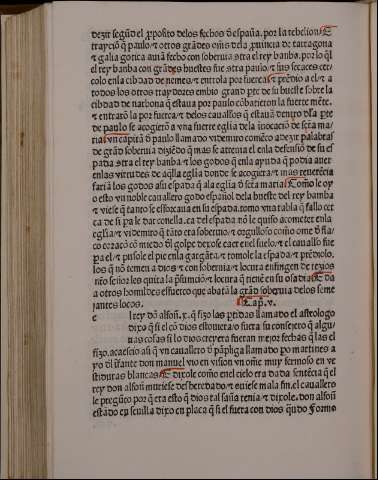 dezir según el pposito delos fechos d'españa. por la rebelion E
trayciõ q̃ paulo z otros grãdes cuius dela puincia de tarragona
z galia gotica auiã fecho con soberuia stra el rey bamba. por lo q̃l
el rey banba con grãdes huestes fue stra paulo z sus secaces cer
colo enla cibdad de nemes z entrola por fuerça z prẽdio a el z a
todos los otros traydores embio grand pte de su hueste sobre la
cibdad de narbona q̃ estaua por paulo cõbatieron la fuerte mẽte.
z entrarõ la por fuerça z delos cauallos q̃ estauã dentro dla pte
de paulo se acogierõ a vna fuerte eglia dela inuocaciõ de sctã ma
ria vn capitã d' paulo llamado videmiro comẽço a dezir palabras
de grãd soberuia diziẽdo q̃ mas se atrenia el enla defensiõ de su es
pada stra el rey banba z los godos q̃ enla ayuda q̃ podia auer
enlas virtudes de aq̃lla eglia donde se acogiera z mas reuerẽcia
fariã los godos asu espada q̃ ala eglia d' sctã maria Como le oy
o esto vn noble cauallero godo español dela hueste del rey bamba
z viese q̃ tanto se esforçaua en su espada. tomo vna tabla q̃ fallo cer
ca de si pa le dar conella. ca del espada nõ le quiso acometer enla
eglia z videmiro q̃ tãto era soberuio z orgulloso comõ ome d' fla
co coraçõ cõ miedo dl golpe dexose caer enel suelo z el cauallo fue
pa el z pusole el pie enla gargãta z tomole la espada z prẽdiolo.
los q̃ nõ temen a dios z con soberuia z locura enfingen de rezios
nr̃o señor les quita la p̃sunciõ z locura q̃ tienẽ en su osadia E da
a otros homildes esfuerço que abatã la grãd soberuia delos seme
jantes locos. Cap. v.
e l rey dõ alfoñ. x. q̃ fizo las ptidas llamado el astrologo
dixo q̃ si el cõ dios estouiera o fuera su consejero q̃ algu
nas cosas si lo dios creyera fueran mejor fechas q̃ las el
fizo. acaescio asi q̃ vn cauallero d' pãpliga llamado po martines a
yo dl ifante don manuel vio en vision vn oñie muy fermoso en ve
stiduras blancas E dixole comõ en el cielo era dada sentẽcia q̃ el
rey don alfoñ muriese desheredado z ouiese mala fin. el cauallero
le pregũto por q̃ era esto q̃ dios tal saña tenia z dixole. don alfoñ
estado eñ seuilla dixo en plaça q̃ si el fuera con dios qũdo formo